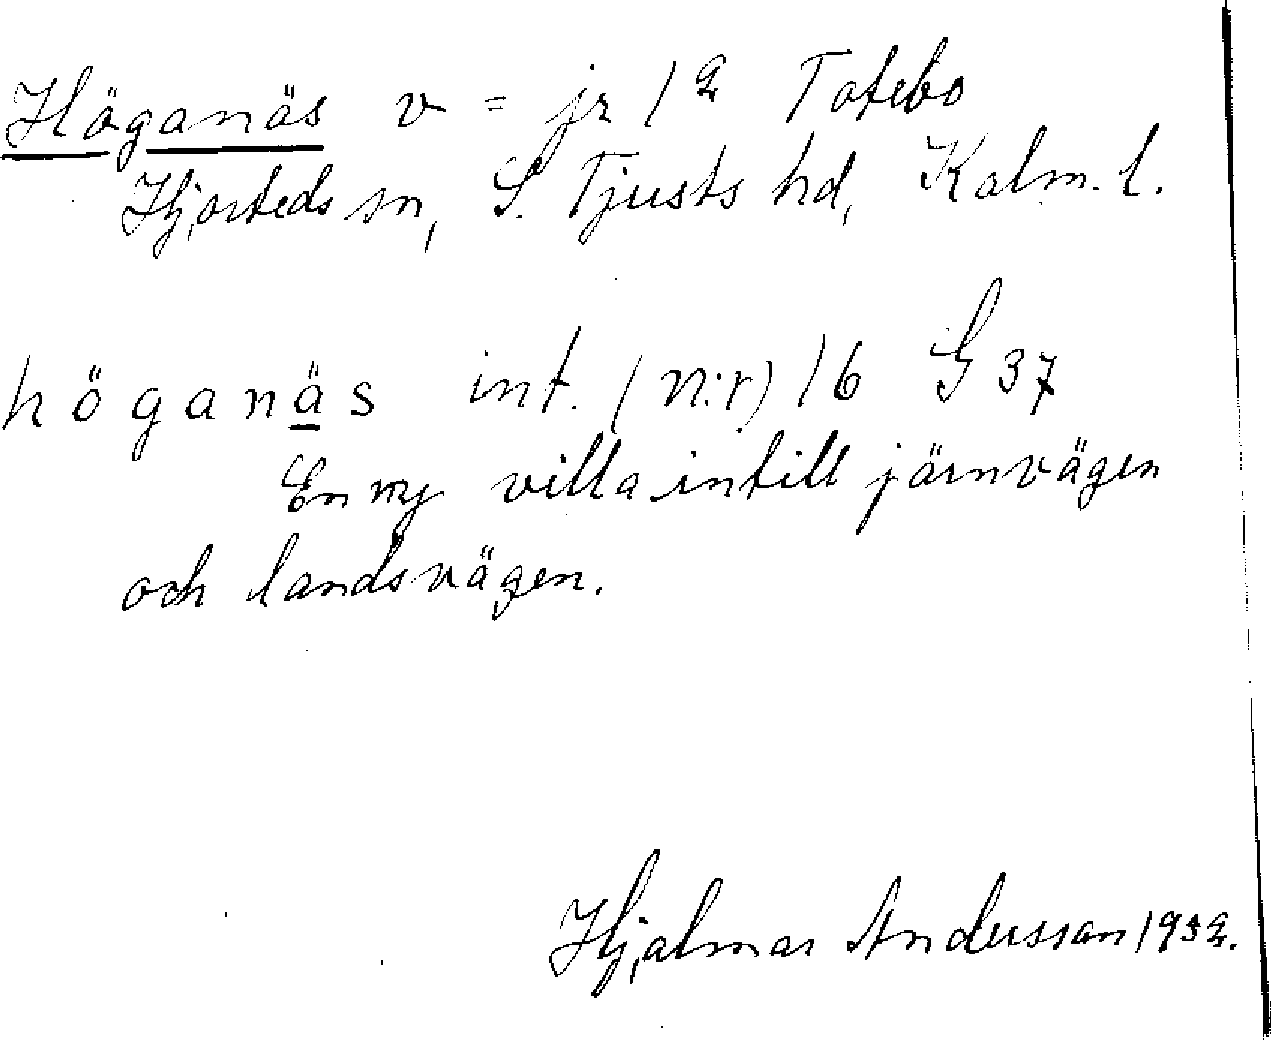 Höganäs v = jr 1² Totebo
Hjorteds sn, S. Tjusts hd, Kalm. l.
höganäs int. (n:r) 16 G 37
En ny villa intill järnvägen
och landsvägen.
Hjalmar Andersson 1932.